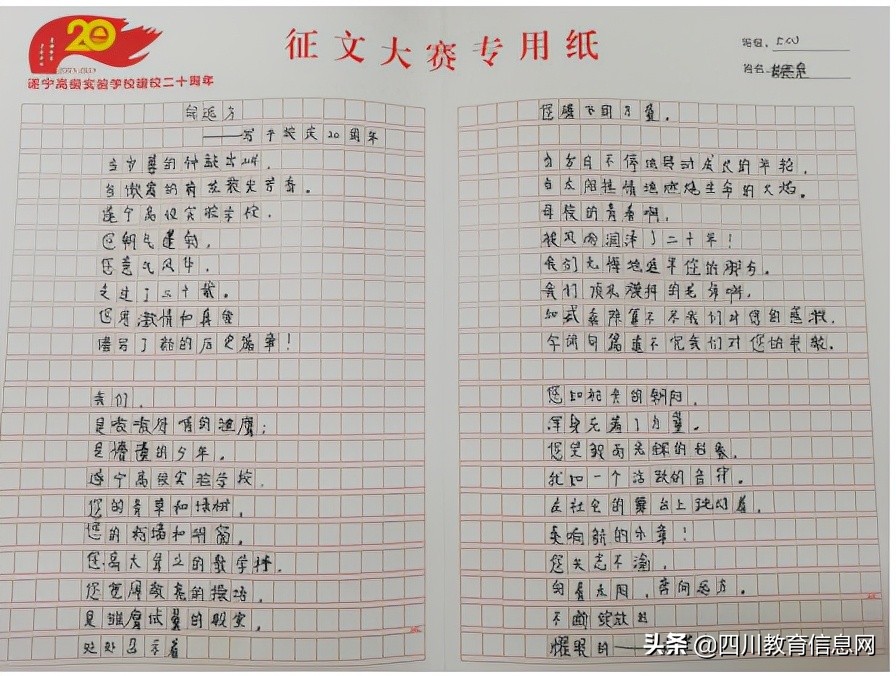 20
遂宁高级实验学校建校二十周年
征文大赛专用纸
班级:
姓名
向远方
——写于校庆20周年
当岁暮的钟敲出
当傲霜的荷花散发芳香。
遂宁高级实验学校,
您朝气蓬勃,
您意气风华,
走过了二十载。
您用激情和真
谱写了新的历史篇章!
我们,
是嗷嗷待哺的雏鹰;
是懵懂的少年。
遂宁高级实验学校,
您的青草和绿树,
您的粉墙和明窗。
您高大耸立的教学楼,
您宽阔敞亮的操场,
是雏鹰试翼的殿堂,
处处召示着
您腾飞的力量。
当岁月不停地号动成长的年轮,
当太阳热情地燃烧生命的火焰。
母校的青春啊,
被风雨润泽了二十年!
我们无悔地追半您的脚步。
我们顶礼膜拜的老师啊,
加式乘除算不尽我们对您的感激,
字词句篇道不完我们对您的崇敬。
您如初亮的朝阳,
浑身充着了力量。
您是毅而光辉的召象,
犹如一个活跃的音律。
在社会的舞台上跳闪着,
奏响新的乐章!
您矢志不渝,
向着太阳,奔向远方。
不断绽放的
耀眼的——
头条 @四川教育信息网